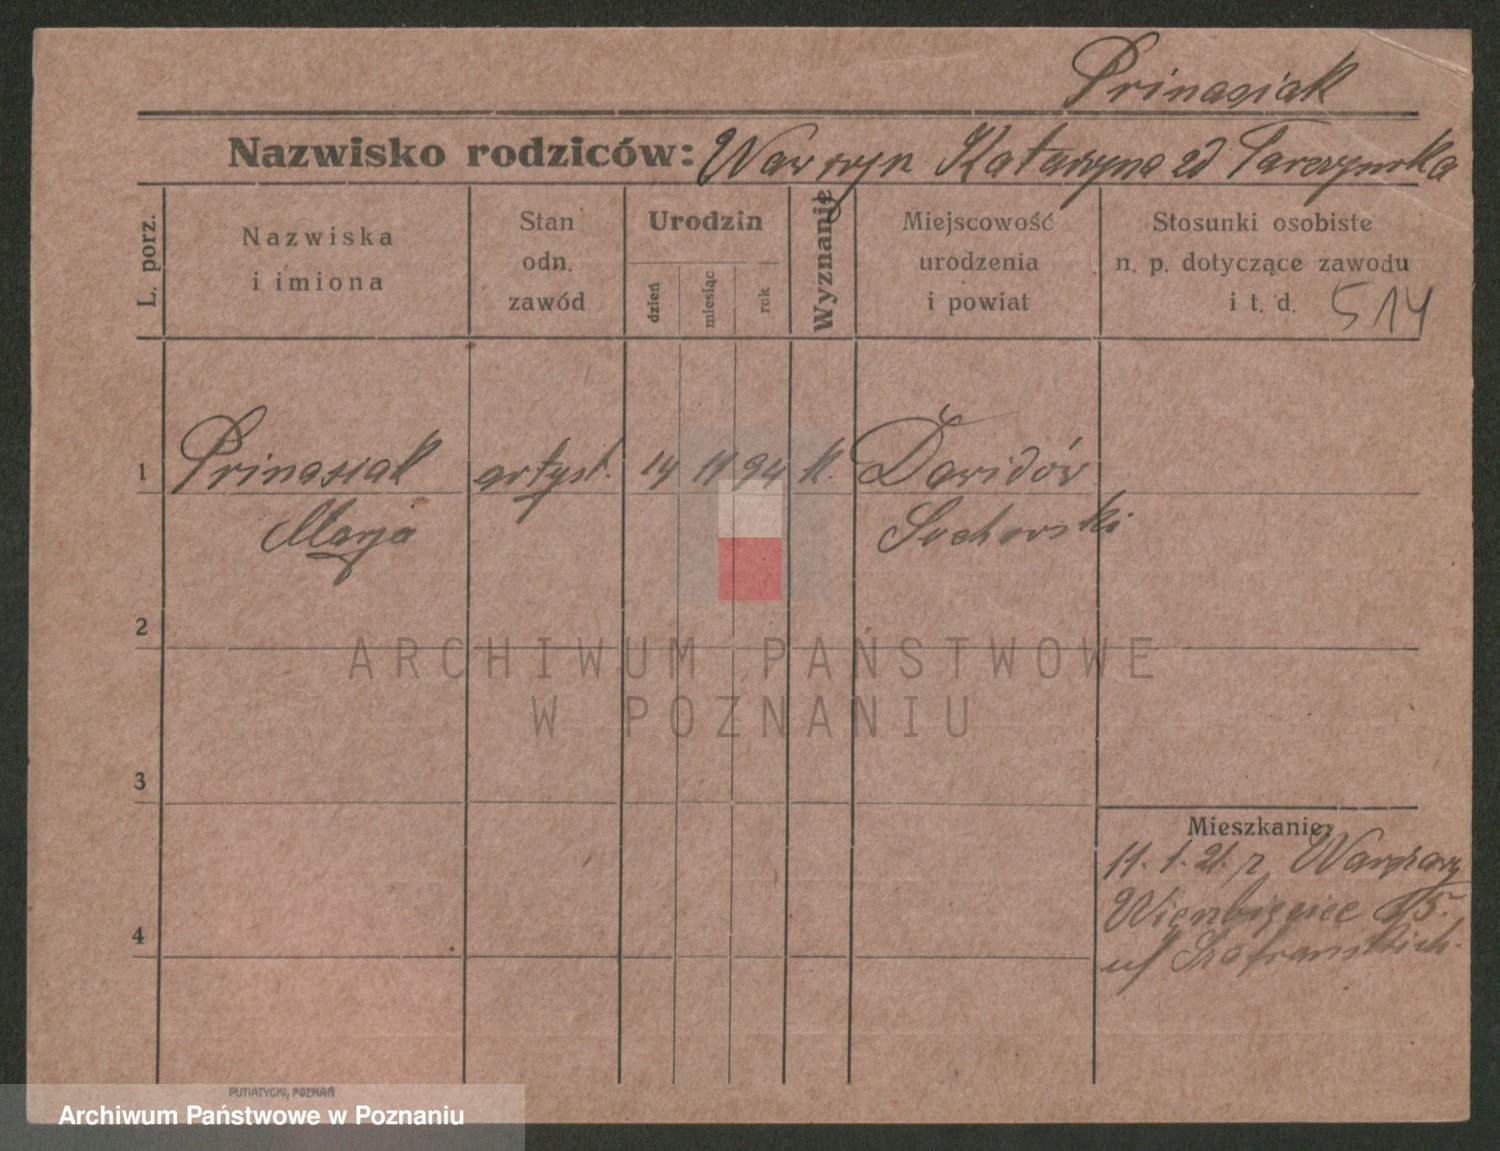 Prinasiak
Nazwisko rodziców: Wawrzyn Katarzyna zd Tarczynska
L. porz.
Nazwiska
i imiona
Stan
odn.
zawód
Urodzin
dzień
miesiąc
rok
Wyznanie
Miejscowość
urodzenia
i powiat
Stosunki osobiste
n. p. dotyczące zawodu
i t. d. 514
1 Prinasiak artyst. 14 11 94 k. Dawidów
Marja Sochorski
2
ARCHIWUM PAŃSTWOWE
W POZNANIU
3
Mieszkanie:
11. 1. 21. z Warszawy
15.
4
u/ Szafranskich.
PUTIATYCKI, POZNAŃ
Archiwum Państwowe w Poznaniu